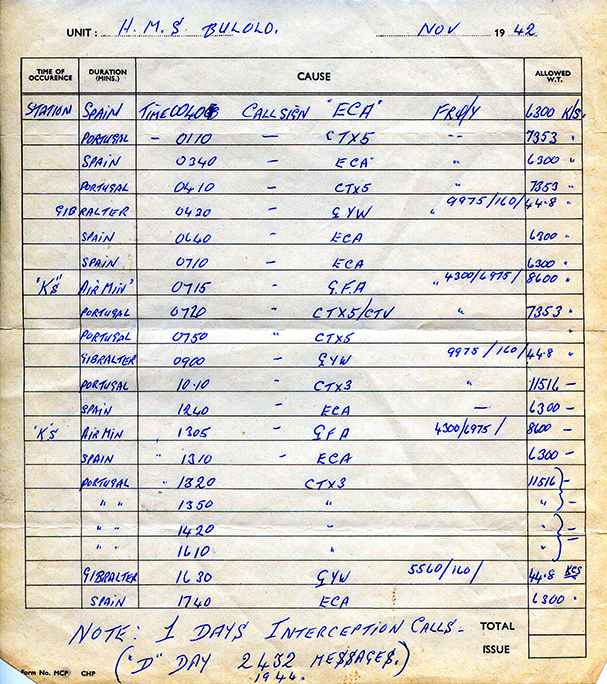 UNIT: H.M.S. BULOLO. NOV 1942
TIME OF OCCURENCE DURATION (MINS.) CAUSE ALLOWED W.T.
STATION SPAIN TIME 0040 CALLSIGN "ECA" FRQ/Y 6300 K/S.
PORTUGAL - 0110 - CTX5 -- 7353 "
SPAIN 0340 - ECA" " 6300 "
PORTUGAL 0410 - CTX5 " 7353 "
GIBRALTER 0420 - GYW " 9975/160/44.8 "
SPAIN 0640 - ECA 6300 "
SPAIN 0710 - ECA 6300 "
"K's" AIR MIN' 0715 - G.F.A " 4300/6975/8600 "
PORTUGAL 0720 - CTX5/CTV " 7353 "
PORTUGAL 0750 " CTX5 "
GIBRALTER 0900 - GYW 9975/160/44.8 "
PORTUGAL 1010 - CTX3 " 11516 -
SPAIN 1240 - ECA — 6300 -
'K's AIR MIN 1305 - GFA 4300/6975/ 8600 -
SPAIN " 1310 - ECA 6300 -
PORTUGAL " 1320 CTX3 11516 -
" " 1350 " " -
" " 1420 " " -
" " 1610 " " -
GIBRALTER 1630 GYW 5560/160/ 44.8 KCS
SPAIN 1740 ECA 6300 "
NOTE: 1 DAYS INTERCEPTION CALLS - TOTAL
("D" DAY 2432 MESSAGES.) ISSUE
1944.
Form No. MCP CHP